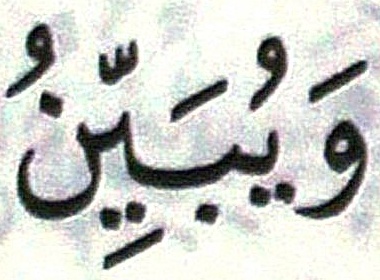 وَيُبَيِّنُ